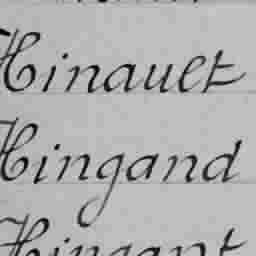 Hinauet
Hingand
Hingant